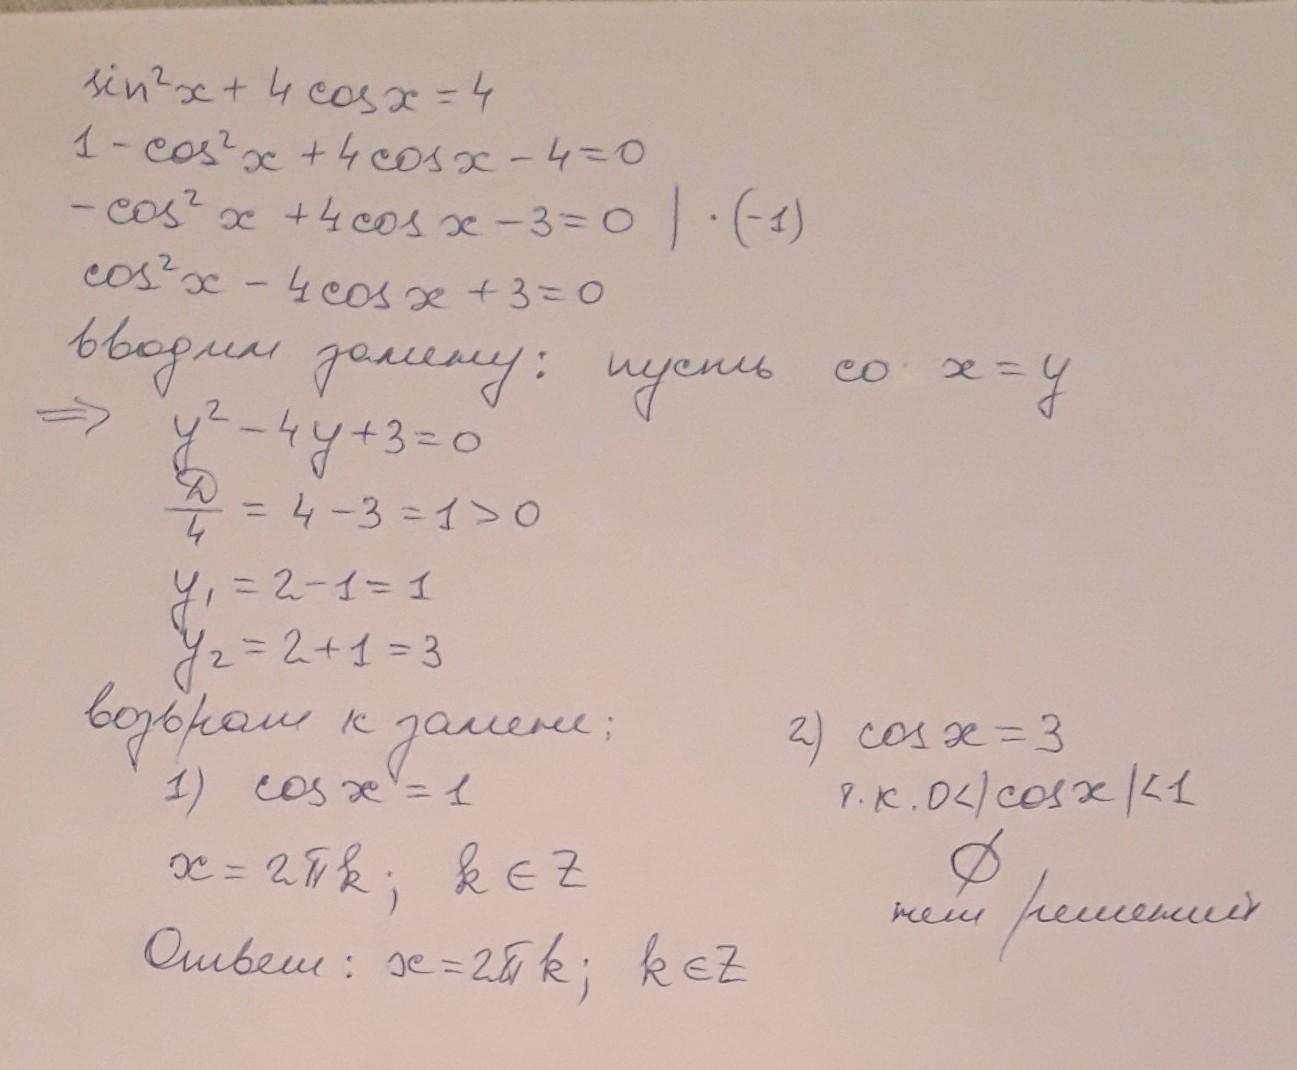 sin²x + 4 cos x = 4
1 - cos²x + 4 cos x - 4 = 0
- cos² x + 4 cos x - 3 = 0 | · (-1)
cos²x - 4 cos x + 3 = 0
вводим замену: пусть со x = y
⇒ y² - 4y + 3 = 0
D/4 = 4 - 3 = 1 > 0
y₁ = 2 - 1 = 1
y₂ = 2 + 1 = 3
возврат к замене:
1) cos x = 1
x = 2πk; k ∈ Z
2) cos x = 3
т.к. 0<|cos x|<1
∅
нет решений
Ответ: x = 2πk; k ∈ Z